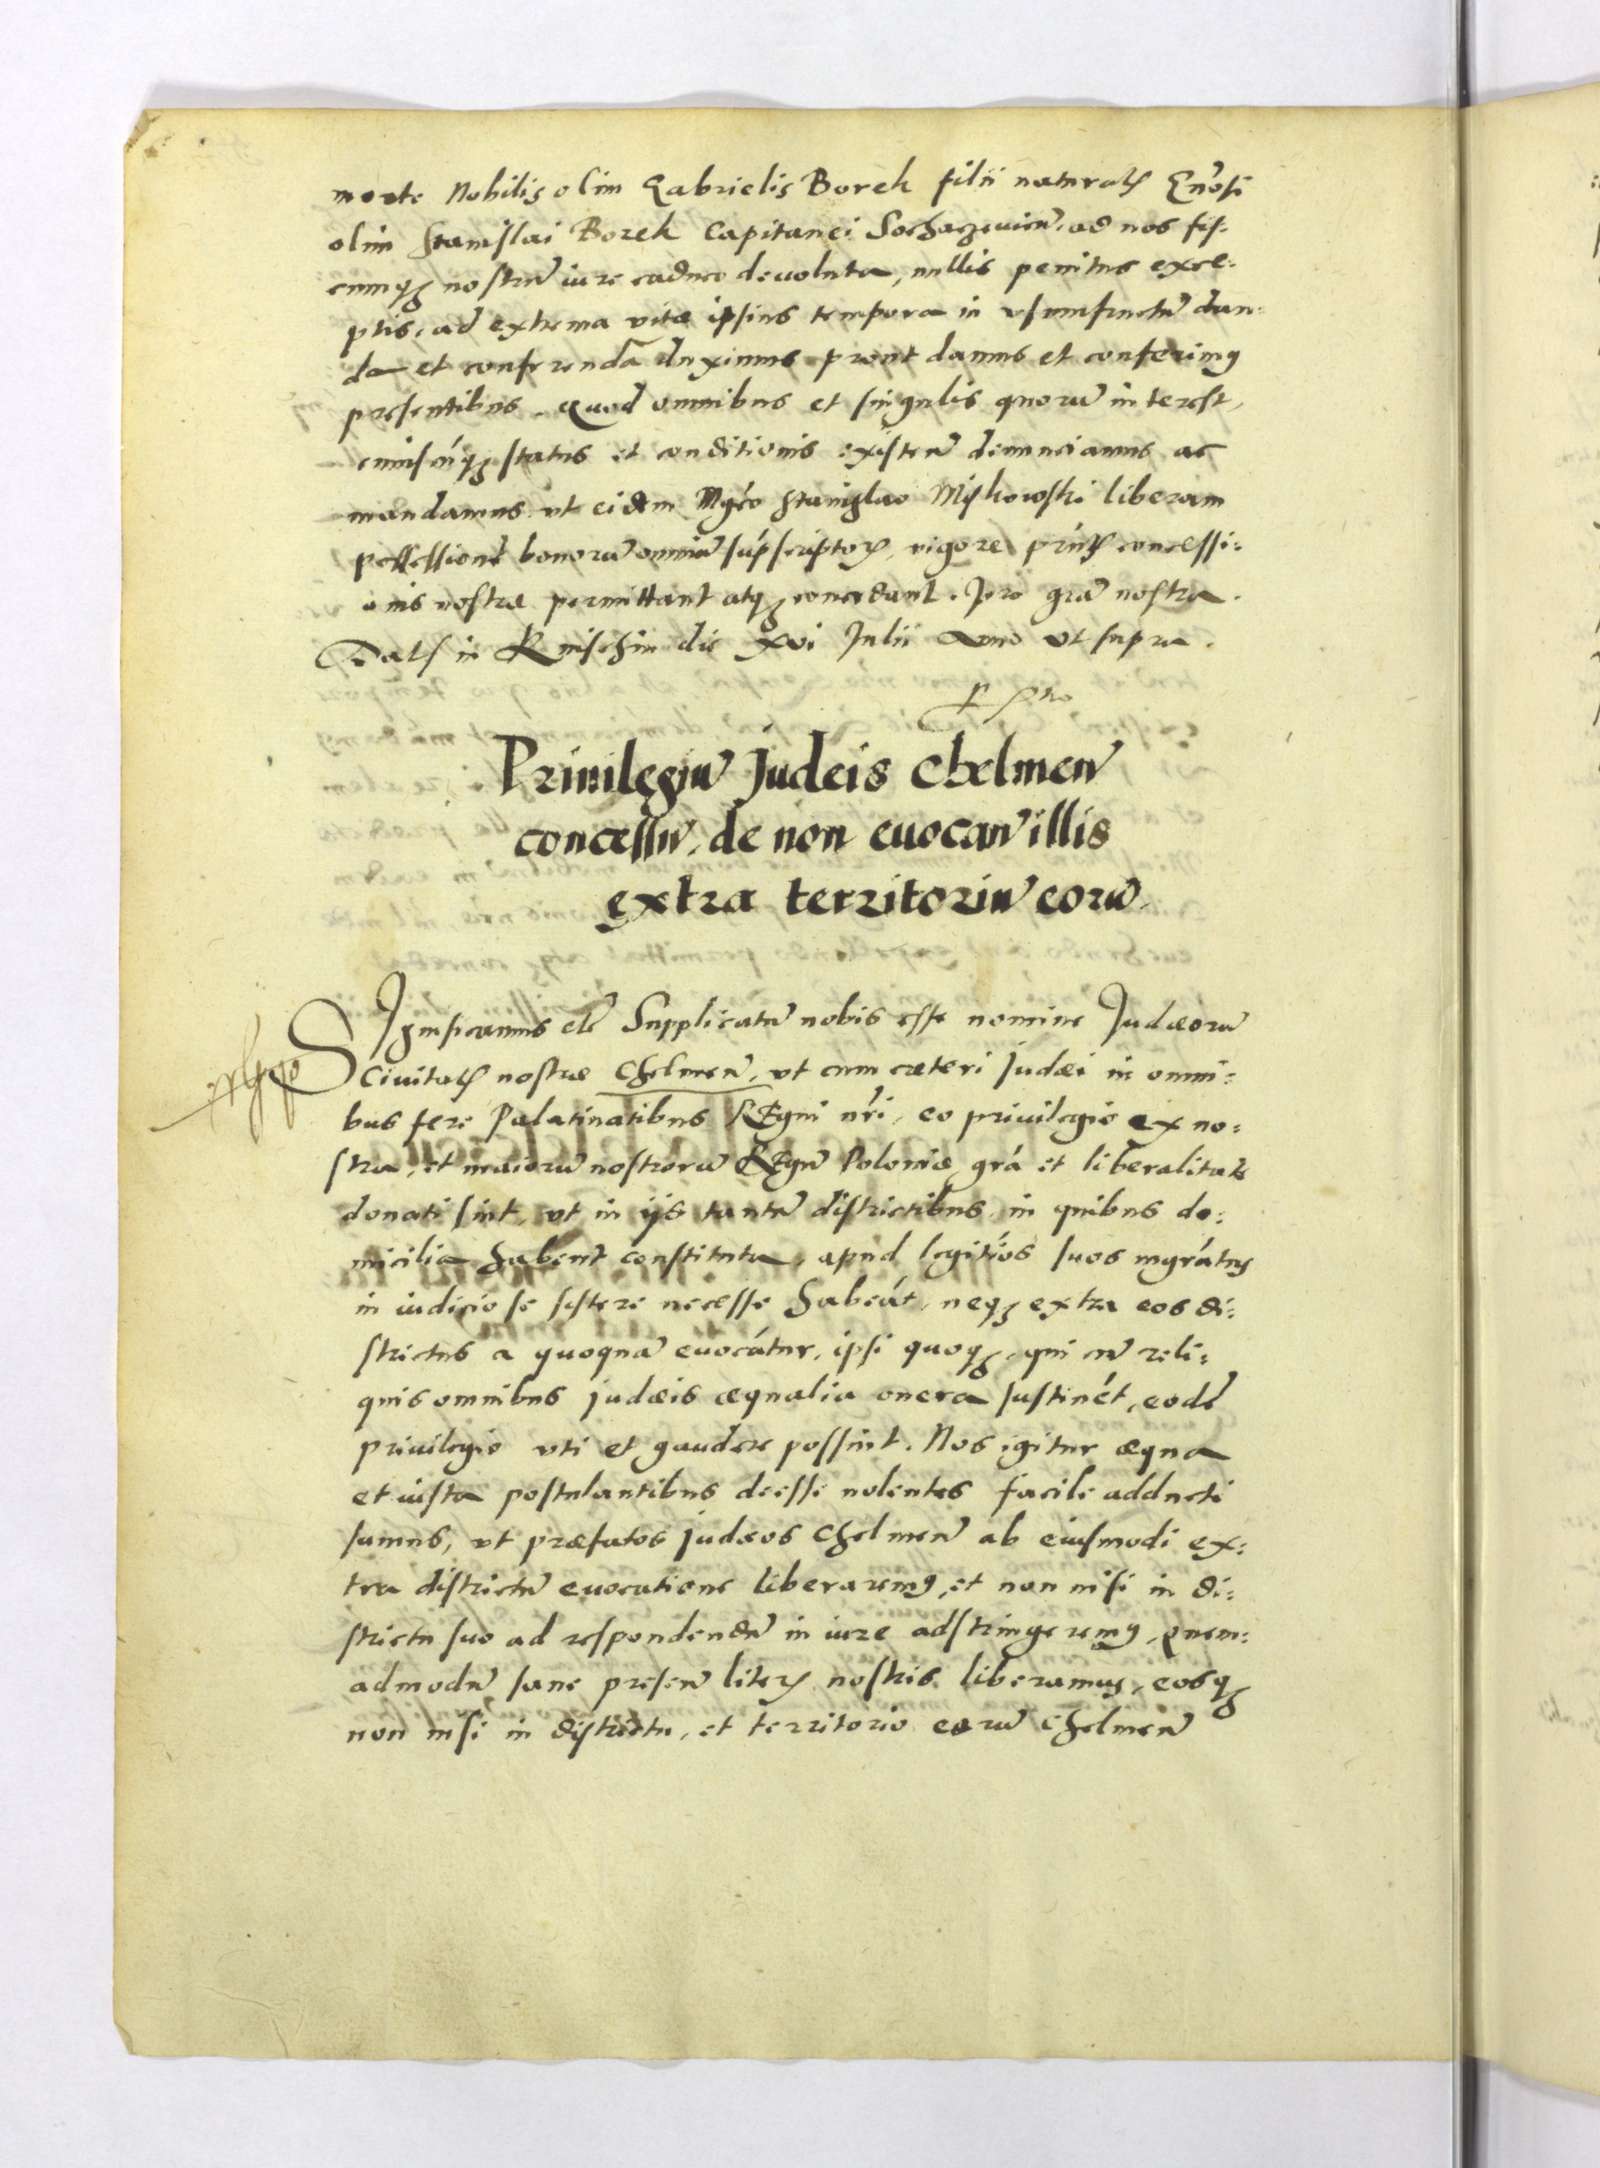 morte Nobilis olim Gabrielis Borek filii naturalis Gn̄osi
olim Stanislai Borek Capitanei Sochaczeuien̄. ad nos fis-
cumq₃ nostrū iure caduco deuoluta, nullis penitus exce-
ptis, ad extrema vitæ ipsius tempora in vsumfructū dan-
da et conferenda duximus prout damus et conferimus
presentibus. Quod omnibus et singulis quorū interest,
cuiuscūq₃ status et conditionis existen̄ denunciamus ac
mandamus vt eidem Mgc̄o Stanislao Miskowski liberam
possessionē bonorū omniū sup̄scriptoꝝ, vigore p̄ntis concessi-
onis nostræ permittant atq₃ concedant. pro gr̄a nostra.
Datis in Knischin die xvi Julii Anno vt supra.
Priuilegiū Judeis Chelmen̄
concessū, de non euocan̄ illis
extra territoriū eorū
Significamus etc̄ Supplicatū nobis esse nomine Judæorū
Ciuitatis nostræ Chelmen̄, vt cum cæteri Judæi in omni-
bus fere Palatinatibus Regni nr̄i, eo priuilegio ex no-
stra, et maiorū nostrorū Regū Poloniæ gr̄a et liberalitate
donati sint, vt in ijs tantū districtibus, in quibus do-
micilia habent constituta, apud legitīos suos mgr̄atus
in iudicio se sistere necesse habeāt, neq₃ extra eos di-
strictus a quoquā euocātur, ipsi quoq₃, qui cū reli-
quis omnibus Judæis æqualia onera sustinēt, eodē
priuilegio vti et gaudere possint. Nos igitur æqua
et iusta postulantibus deesse nolentes facile adducti
sumus, vt præfatos Judæos Chelmen̄ ab eiusmodi ex-
tra districtū euocatione liberaremus, et non nisi in di-
strictu suo ad respondendū in iure adstringeremus, Quem-
admodū sane presen̄ literis nostris liberamus, eosq₃
non nisi in districtu, et territorio eorū Chelmen̄